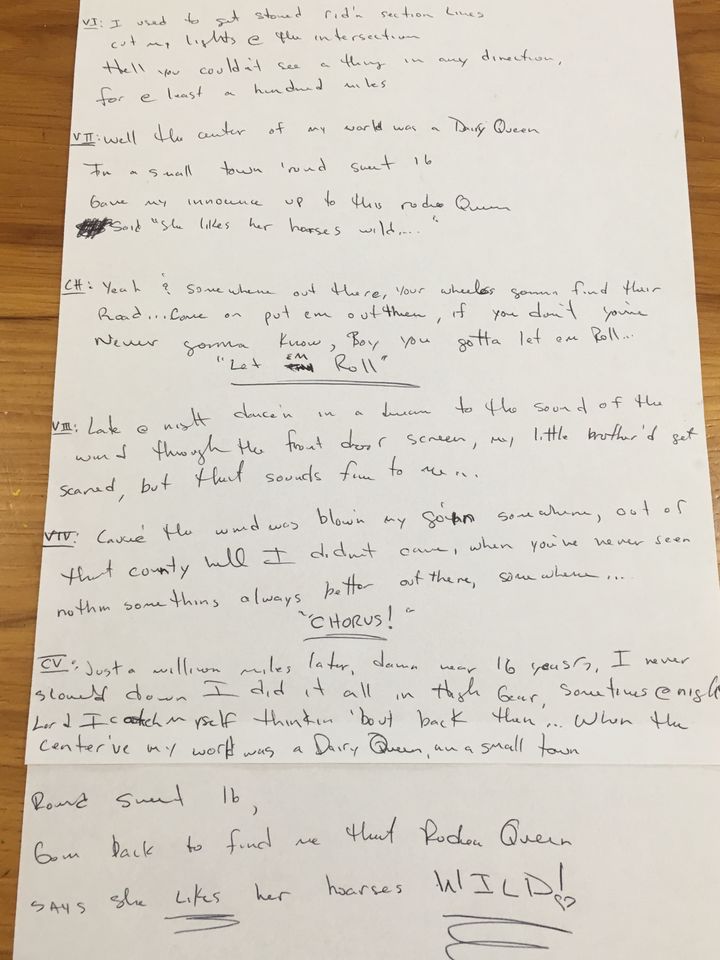 VI: I used to get stoned rid'n section lines
cut my lights @ the intersection
Hell you couldn't see a thing in any direction,
for @ least a hundred miles
VII: Well the center of my world was a Dairy Queen
In a small town 'round sweet 16
Gave my innocence up to this rodeo Queen
Said "she likes her hoarses wild...."
CH: Yeah & somewhere out there, your wheels gonna find their
Road... Come on put em out them, if you don't you're
Never gonna know, Boy you gotta let em Roll...
"Let EM Roll"
VIII: Late @ night dance'n in a dream to the sound of the
wind through the front door screen, my little brother'd get
scared, but that sounds fine to me...
VIV: Cause the wind was blown my somewhere, out of
that county hell I didn't care, when you've never seen
nothin something always better out there, somewhere...
"CHORUS!"
CV: Just a million miles later, damn near 16 years, I never
slowed down I did it all in high Gear, Sometimes @ nigh
Lord I catch myself thinkin 'bout back then... When the
center've my world was a Dairy Queen, in a small town
Round sweet 16,
Gom back to find me that Rodeo Queen
SAYS she LIKES her hoarses WILD!